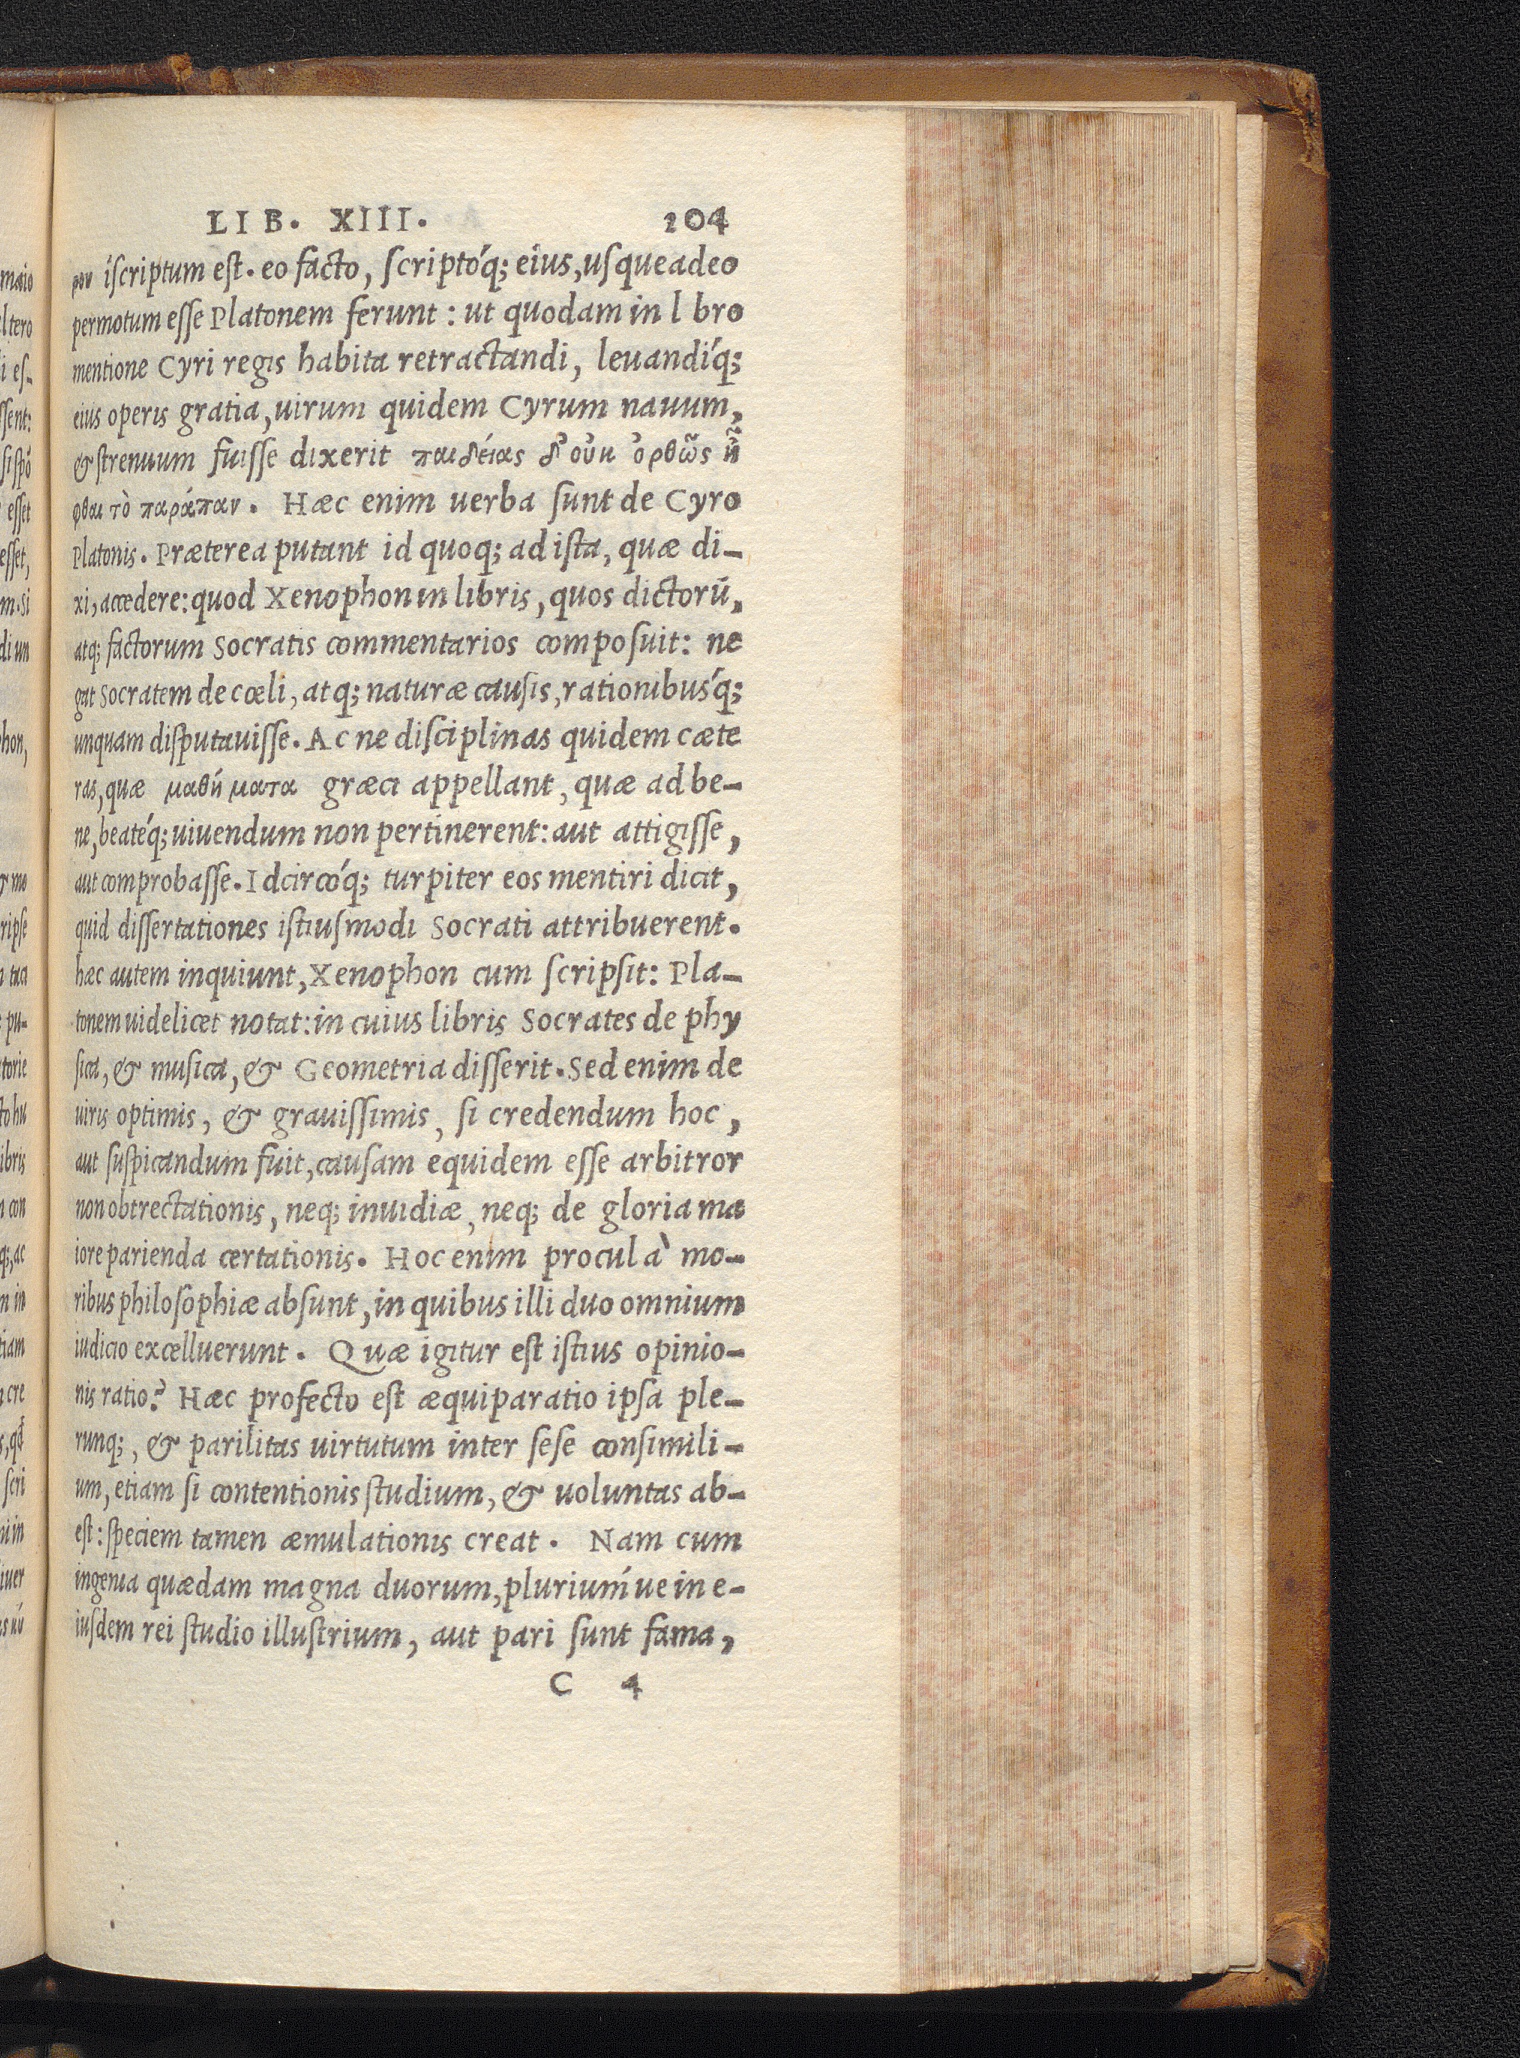 LIB. XIII. 104
ρου íscriptum est. eo facto, scriptóq; eius, usqueadeo
permotum esse Platonem ferunt: ut quodam in l bro
mentione Cyri regis habita retractandi, leuandíq;
eius operis gratia, uirum quidem Cyrum nauum,
& strenuum fuisse dixerit παιδέιας δ᾽ οὐκ ὀρθῶς ἧ
φθαι τὸ παράπαν. Hæc enim uerba sunt de Cyro
Platonis. Præterea putant id quoq; ad ista, quæ di-
xi, accedere: quod Xenophon in libris, quos dictorū,
atq; factorum Socratis commentarios composuit: ne
gat Socratem de cœli, atq; naturæ causis, rationibus´q;
unquam disputauisse. Ac ne disciplinas quidem cæte
ras, quæ μαθήματα græci appellant, quæ ad be-
ne, beatéq; uiuendum non pertinerent: aut attigisse,
aut comprobasse. Idcircóq; turpiter eos mentiri dicit,
quid dissertationes istiusmodi Socrati attribuerent.
hæc autem inquiunt, Xenophon cum scripsit: Pla-
tonem uidelicet notat: in cuius libris Socrates de phy
sica, & musica, & Geometria disserit. Sed enim de
uiris optimis, & grauissimis, si credendum hoc,
aut suspicandum fuit, causam equidem esse arbitror
non obtrectationis, neq; inuidiæ, neq; de gloria ma
iore parienda certationis. Hoc enim procul à mo-
ribus philosophiæ absunt, in quibus illi duo omnium
iudicio excelluerunt. Quæ igitur est istius opinio-
nis ratio? Hæc profecto est æquiparatio ipsa ple-
runq;, & parilitas uirtutum inter sese consimili-
um, etiam si contentionis studium, & uoluntas ab-
est: speciem tamen æmulationis creat. Nam cum
ingenia quædam magna duorum, plurium´ue in e-
iusdem rei studio illustrium, aut pari sunt fama,
C 4